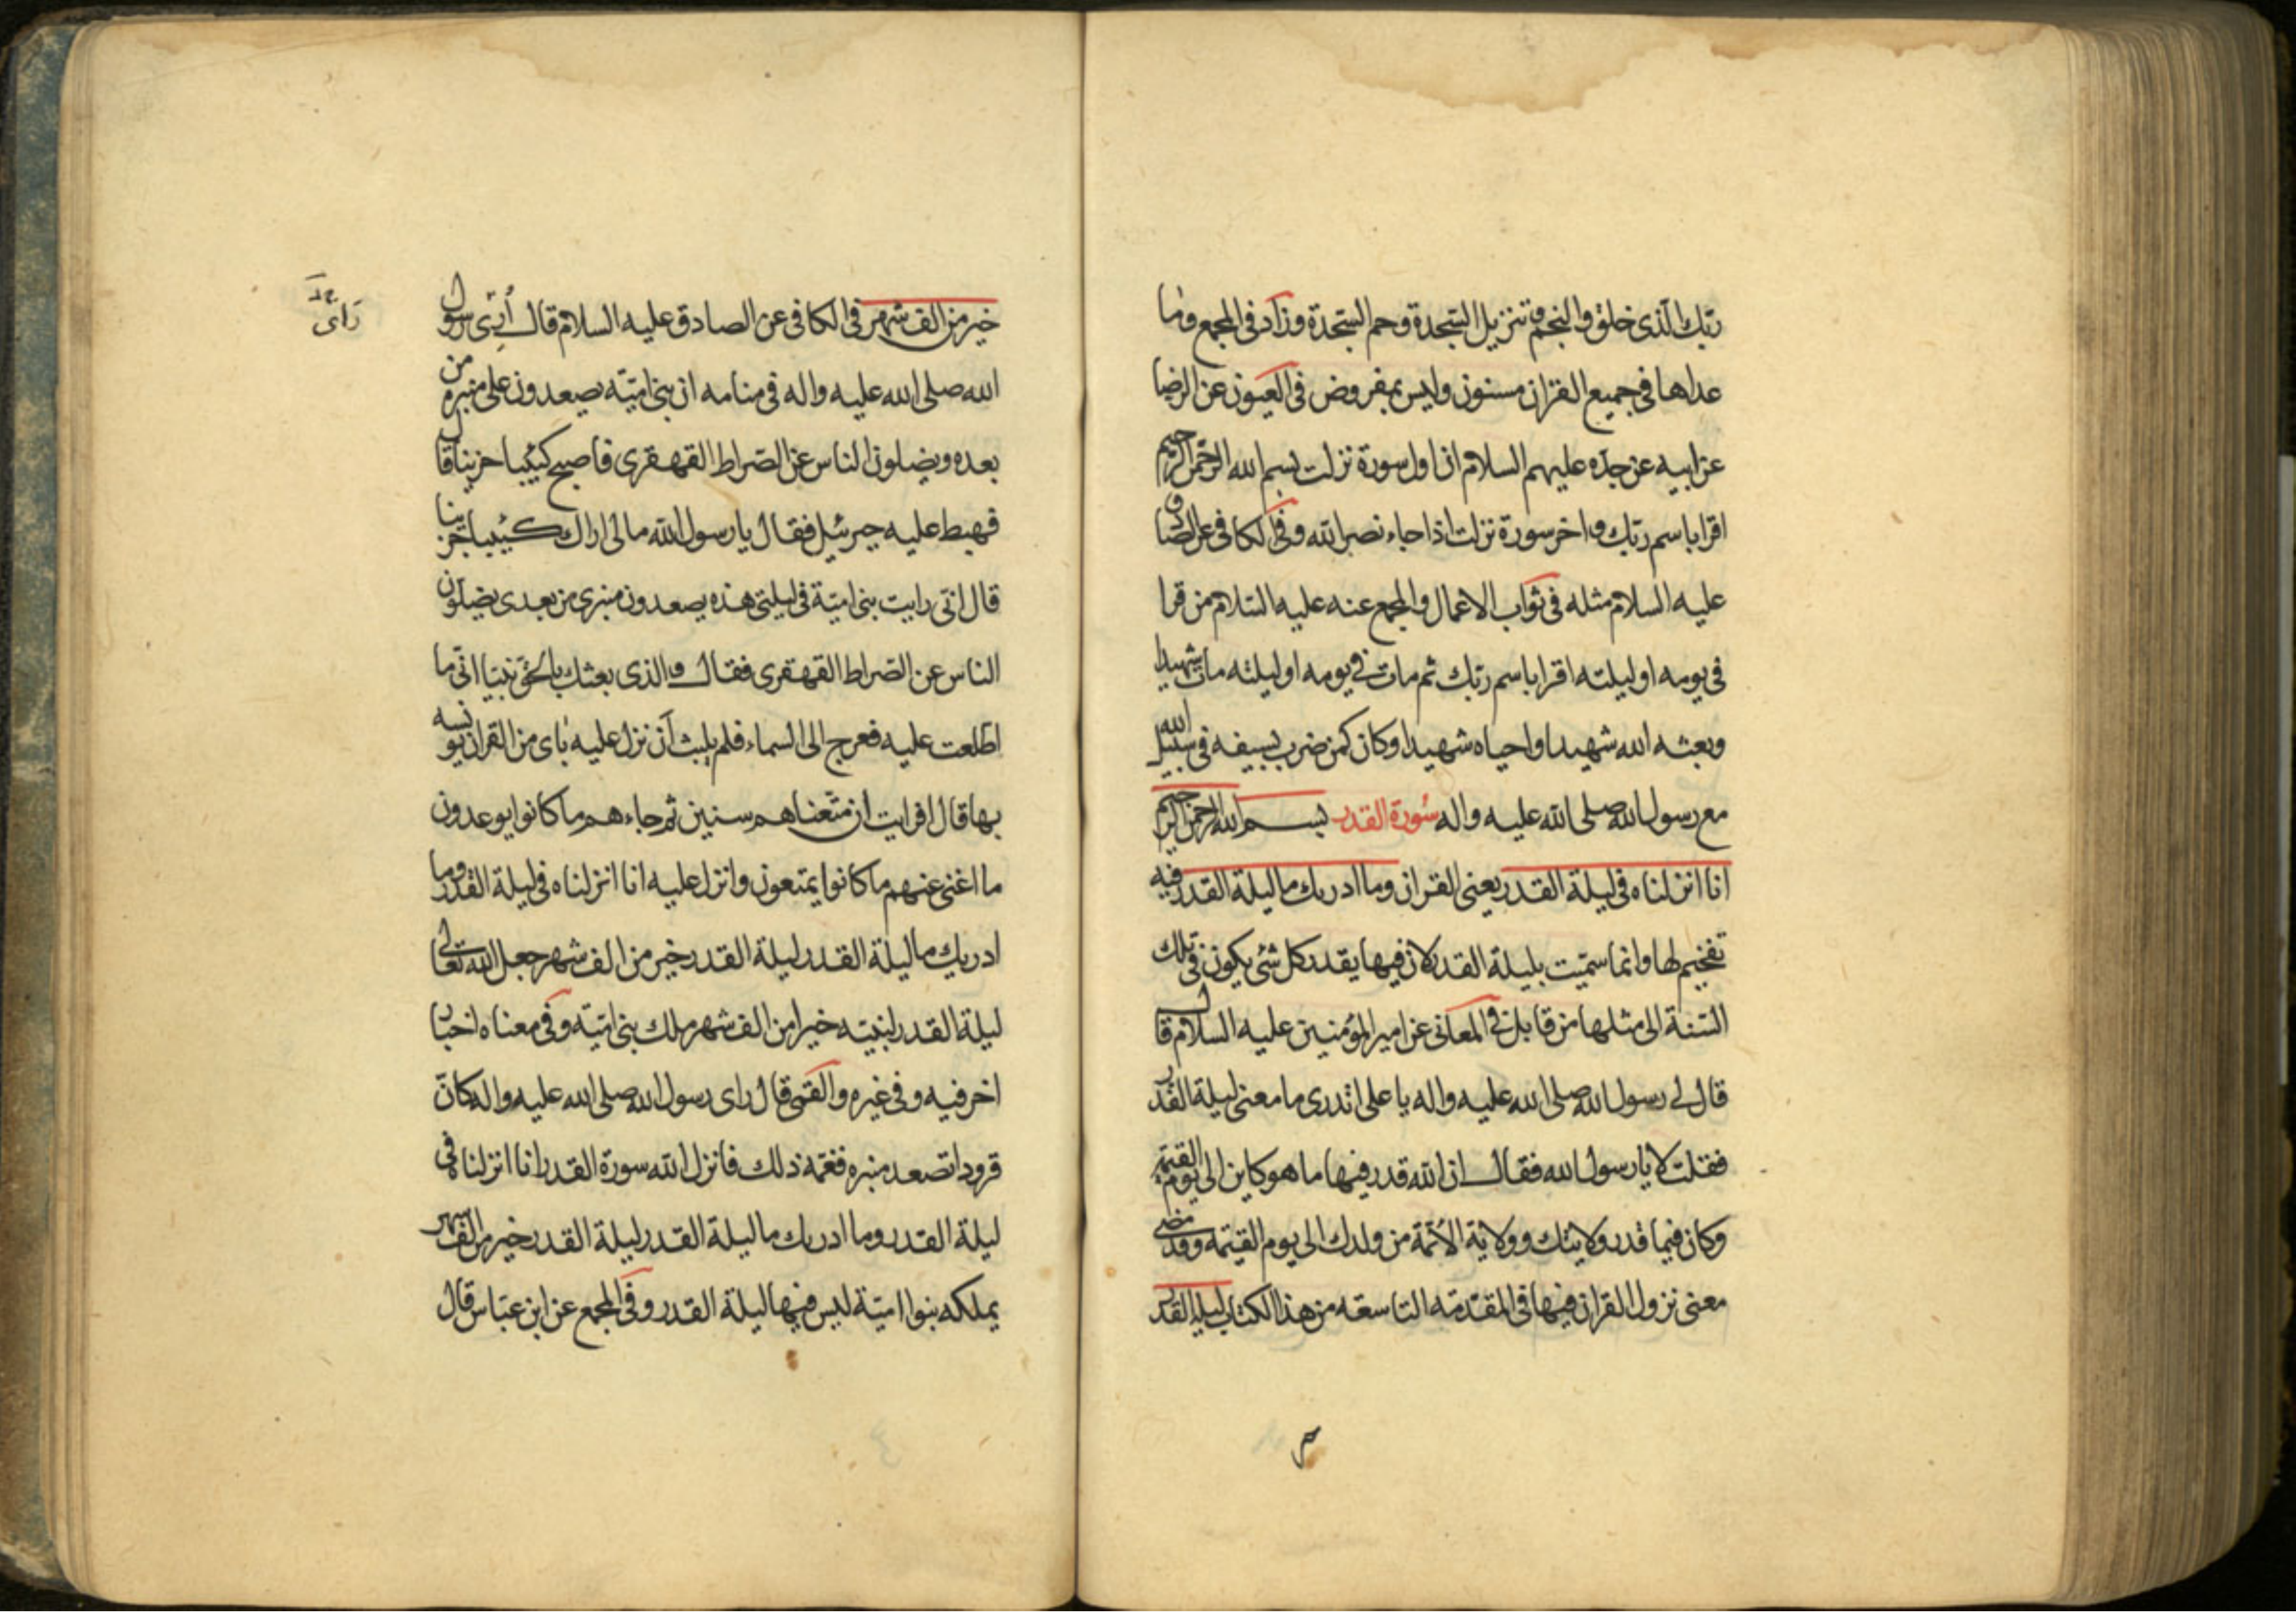 ربّك الّذى خلق والنجم وتنزيل السّجدة وحم السّجدة وزاد فى المجمع وما
عداها فى جميع القران مسنون وليس بمفروض فى العيون عن الرضا
عن ابيه عن جدّه عليهم السلام ان اول سورة نزلت بسم الله الرحمن الرحيم
اقرا باسم ربّك واخر سورة نزلت اذا جاء نصر الله وفى الكافى عن الصادق
عليه السلام مثله فى ثواب الاعمال والمجمع عنه عليه السّلام من قرا
فى يومه او ليلته اقرا باسم ربّك ثم مات فى يومه او ليلته مات شهيدا
وبعثه الله شهيدا واحياه شهيدا وكان كمن ضرب بسيفه فى سبيل الله
مع رسول الله صلى الله عليه واله سورة القدر بسم الله الرحمن الرحيم
انا انزلناه فى ليلة القدر يعنى القران وما ادريك ما ليلة القدر فيه
تفخيم لها وانما سمّيت بليلة القدر لان فيها يقدر كل شئ يكون فى تلك
السّنة الى مثلها من قابل فى المعانى عن امير المؤمنين عليه السلام قال
قال لى رسول الله صلى الله عليه واله يا على اتدرى ما معنى ليلة القدر
فقلت لا يا رسول الله فقال ان الله قدر فيها ما هو كاين الى يوم القيمة
وكان فيما قدر ولايتك وولاية الائمّة من ولدك الى يوم القيمة وقد مضى
معنى نزول القران فيها فى المقدّمة التاسعة من هذا الكتاب ليلة القدر
خير من الف شهر فى الكافى عن الصادق عليه السلام قال أُرِىَ رسول
الله صلى الله عليه واله فى منامه ان بنى اميّه يصعدون على منبره من
بعده ويضلون الناس عن الصّراط القهقرى فاصبح كئيبا حزينا قال
فهبط عليه جبرئيل فقال يا رسول الله مالى اراك كئيبا حزينا
قال انّى رايت بنى اميّة فى ليلتى هذه يصعدون منبرى من بعدى يضلّون
الناس عن الصّراط القهقرى فقال والذى بعثك بالحقّ نبيّا انّى ما
اطّلعت عليه فعرج الى السماء فلم يلبث ان نزل عليه باى من القران يونسه
بها قال افرايت ان متّعناهم سنين ثم جاءهم ما كانوا يوعدون
ما اغنى عنهم ما كانوا يمتعون وانزل عليه انا انزلناه فى ليلة القدر وما
ادريك ما ليلة القدر ليلة القدر خير من الف شهر جعل الله تعالى
ليلة القدر لنبيّه خيرا من الف شهر ملك بنى اميّه وفى معناه اخبار
اخر فيه وفى غيره والقمّى قال راى رسول الله صلى الله عليه واله كانّ
قرودا تصعد منبره فغمّه ذلك فانزل الله سورة القدر انا انزلناه فى
ليلة القدر وما ادريك ما ليلة القدر ليلة القدر خير من الف شهر
يملكه بنوا اميّة ليس فيها ليلة القدر وفى المجمع عن ابن عبّاس قال
راى